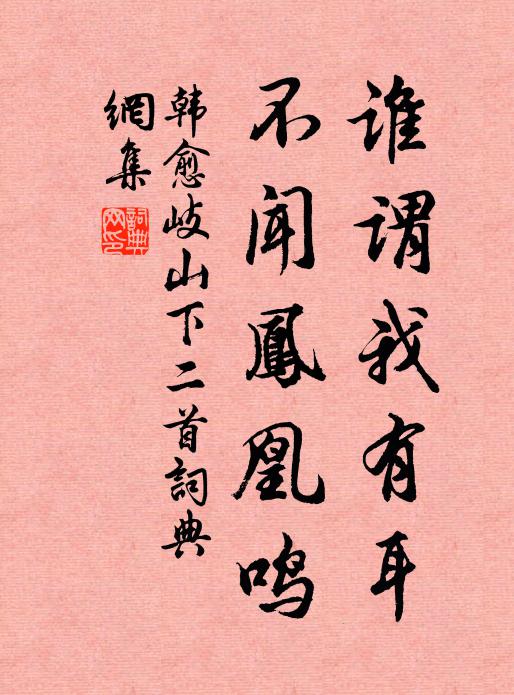 谁谓我有耳
不闻鳳凰鸣
韩愈岐山下二首詞典
網集
詞典网印